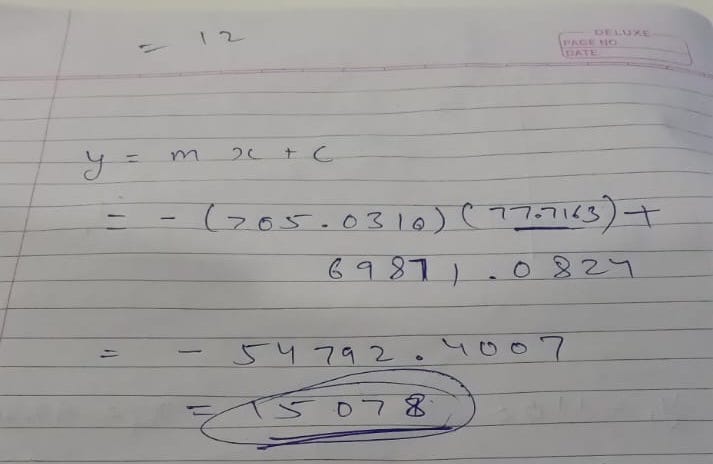 = 12
DELUXE
PAGE NO
DATE
y = mx + c
= - (705.0310) (77.7163) +
69871.0824
= - 54792.4007
= 15078